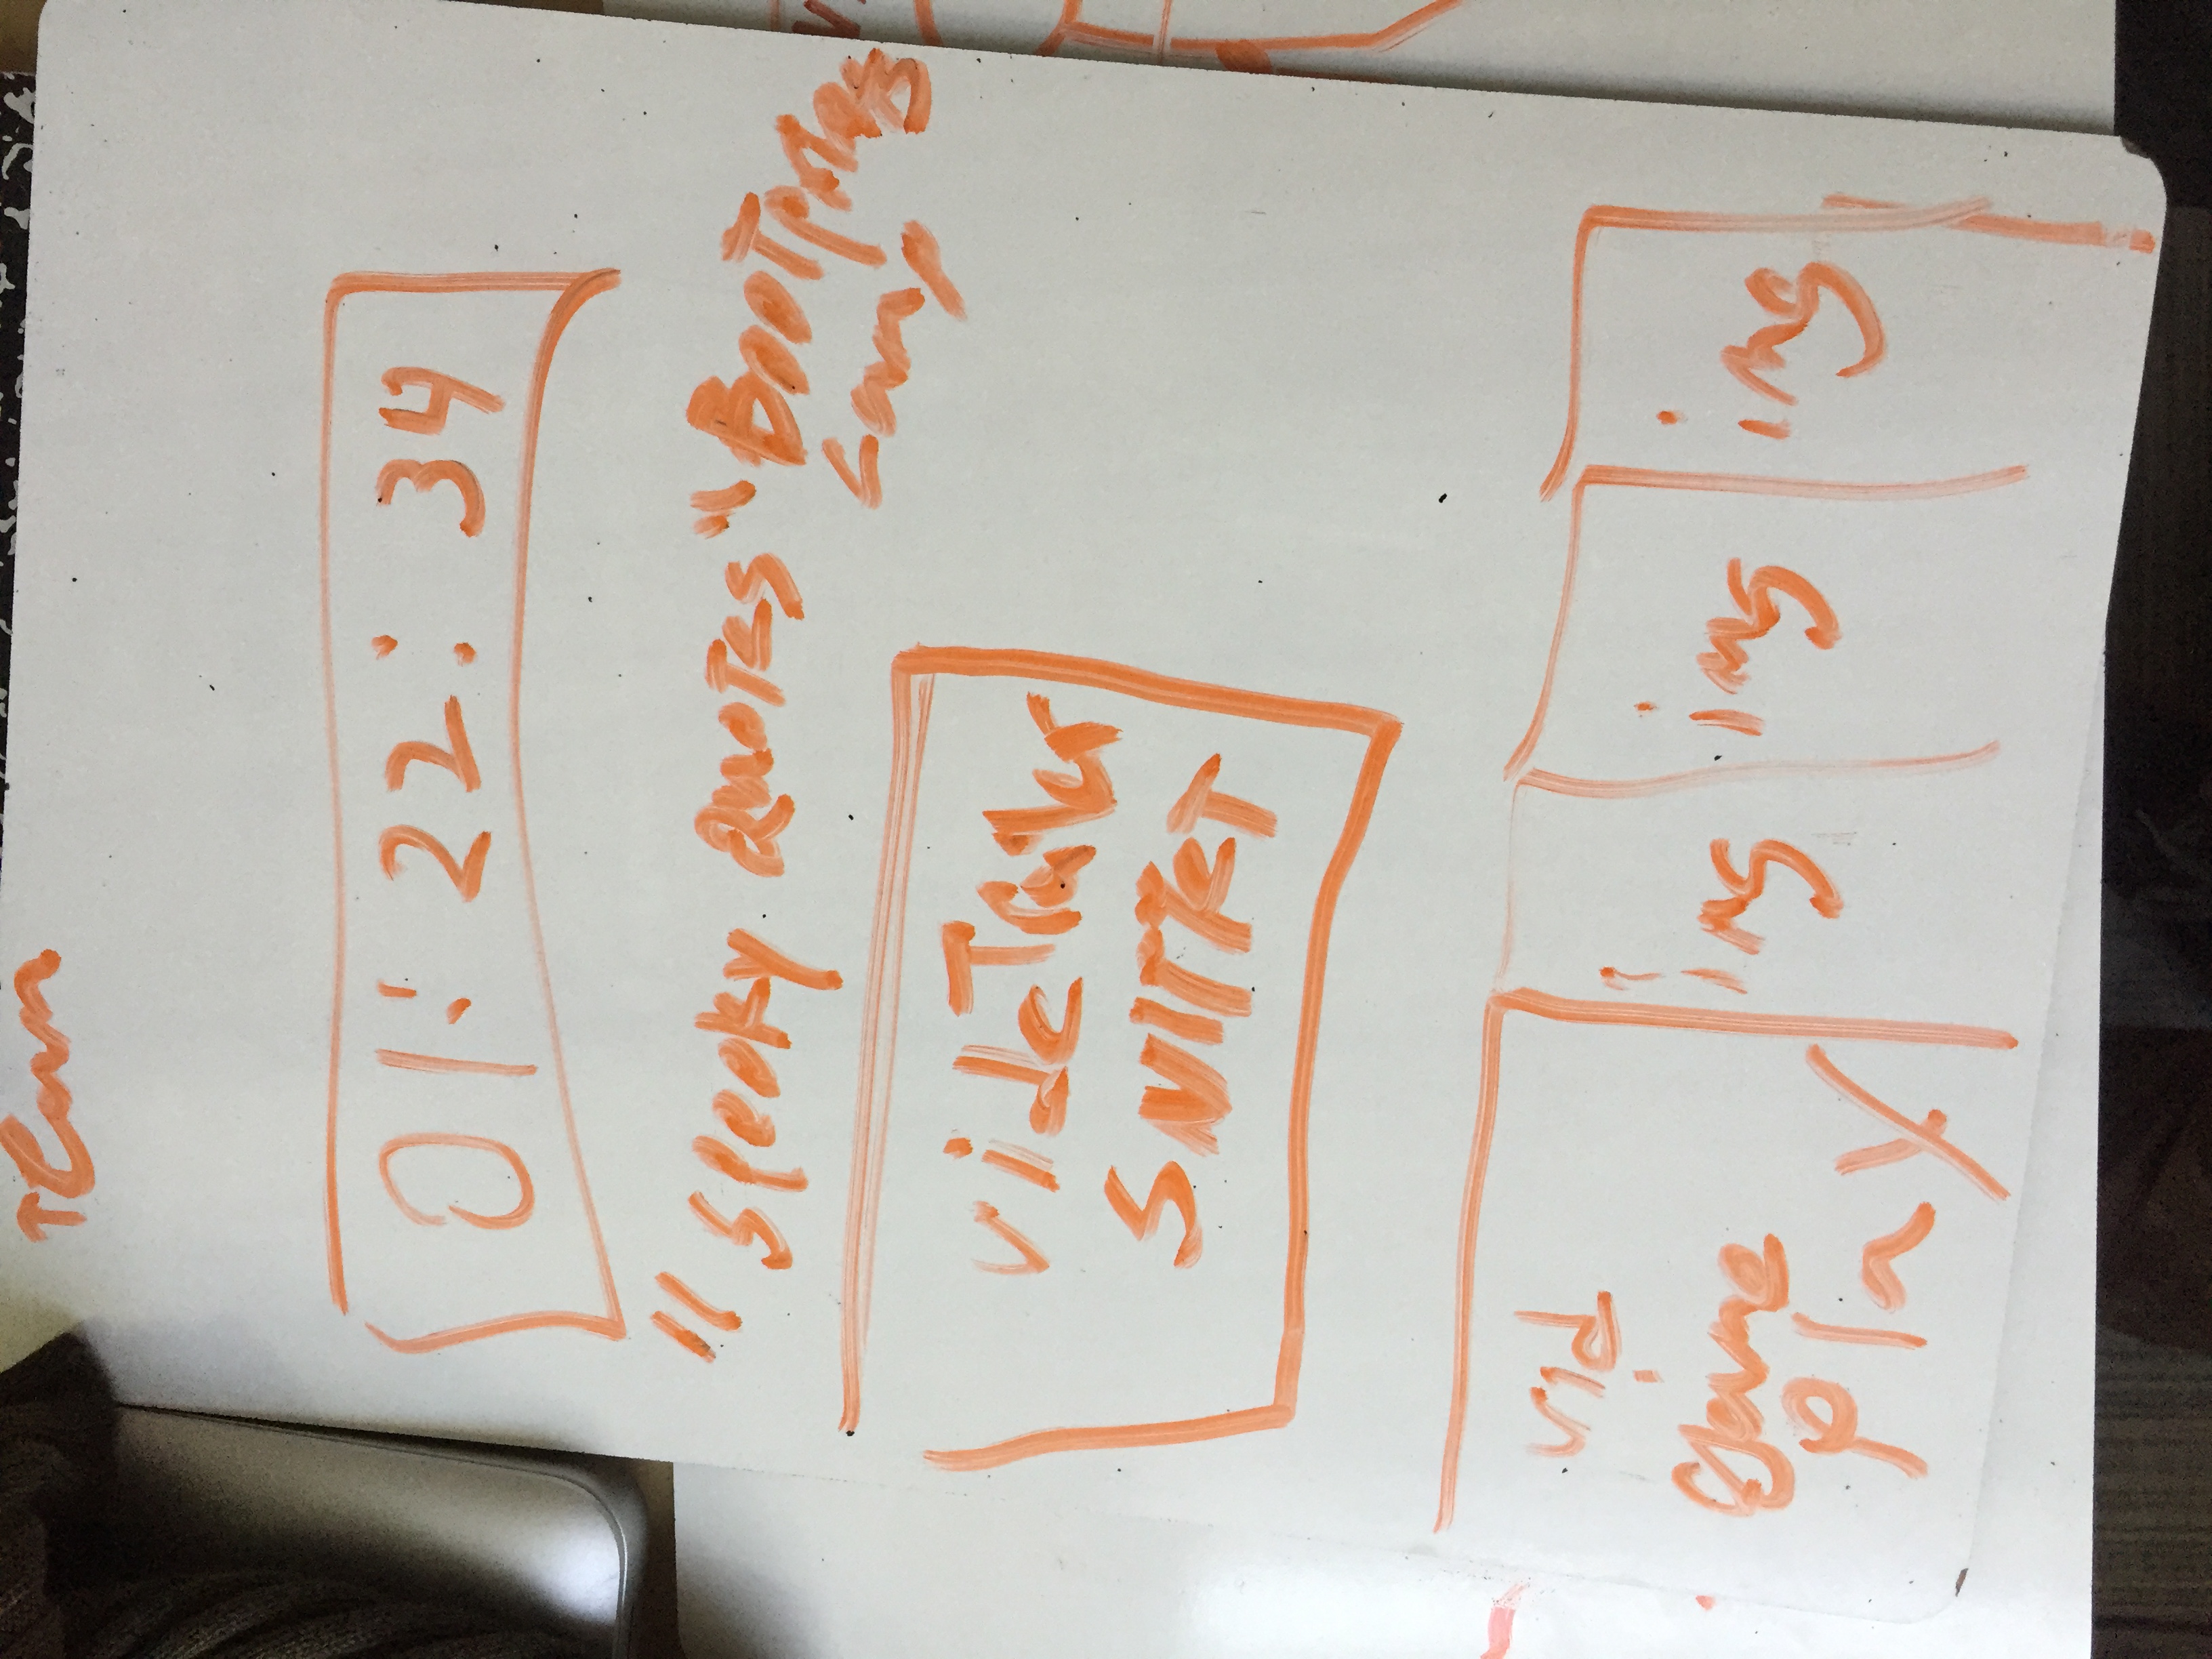 Team
01:22:34
"Spooky Quotes"
Camp
Vide Trailer
SNIPPET
vid
game
play
img
img
img